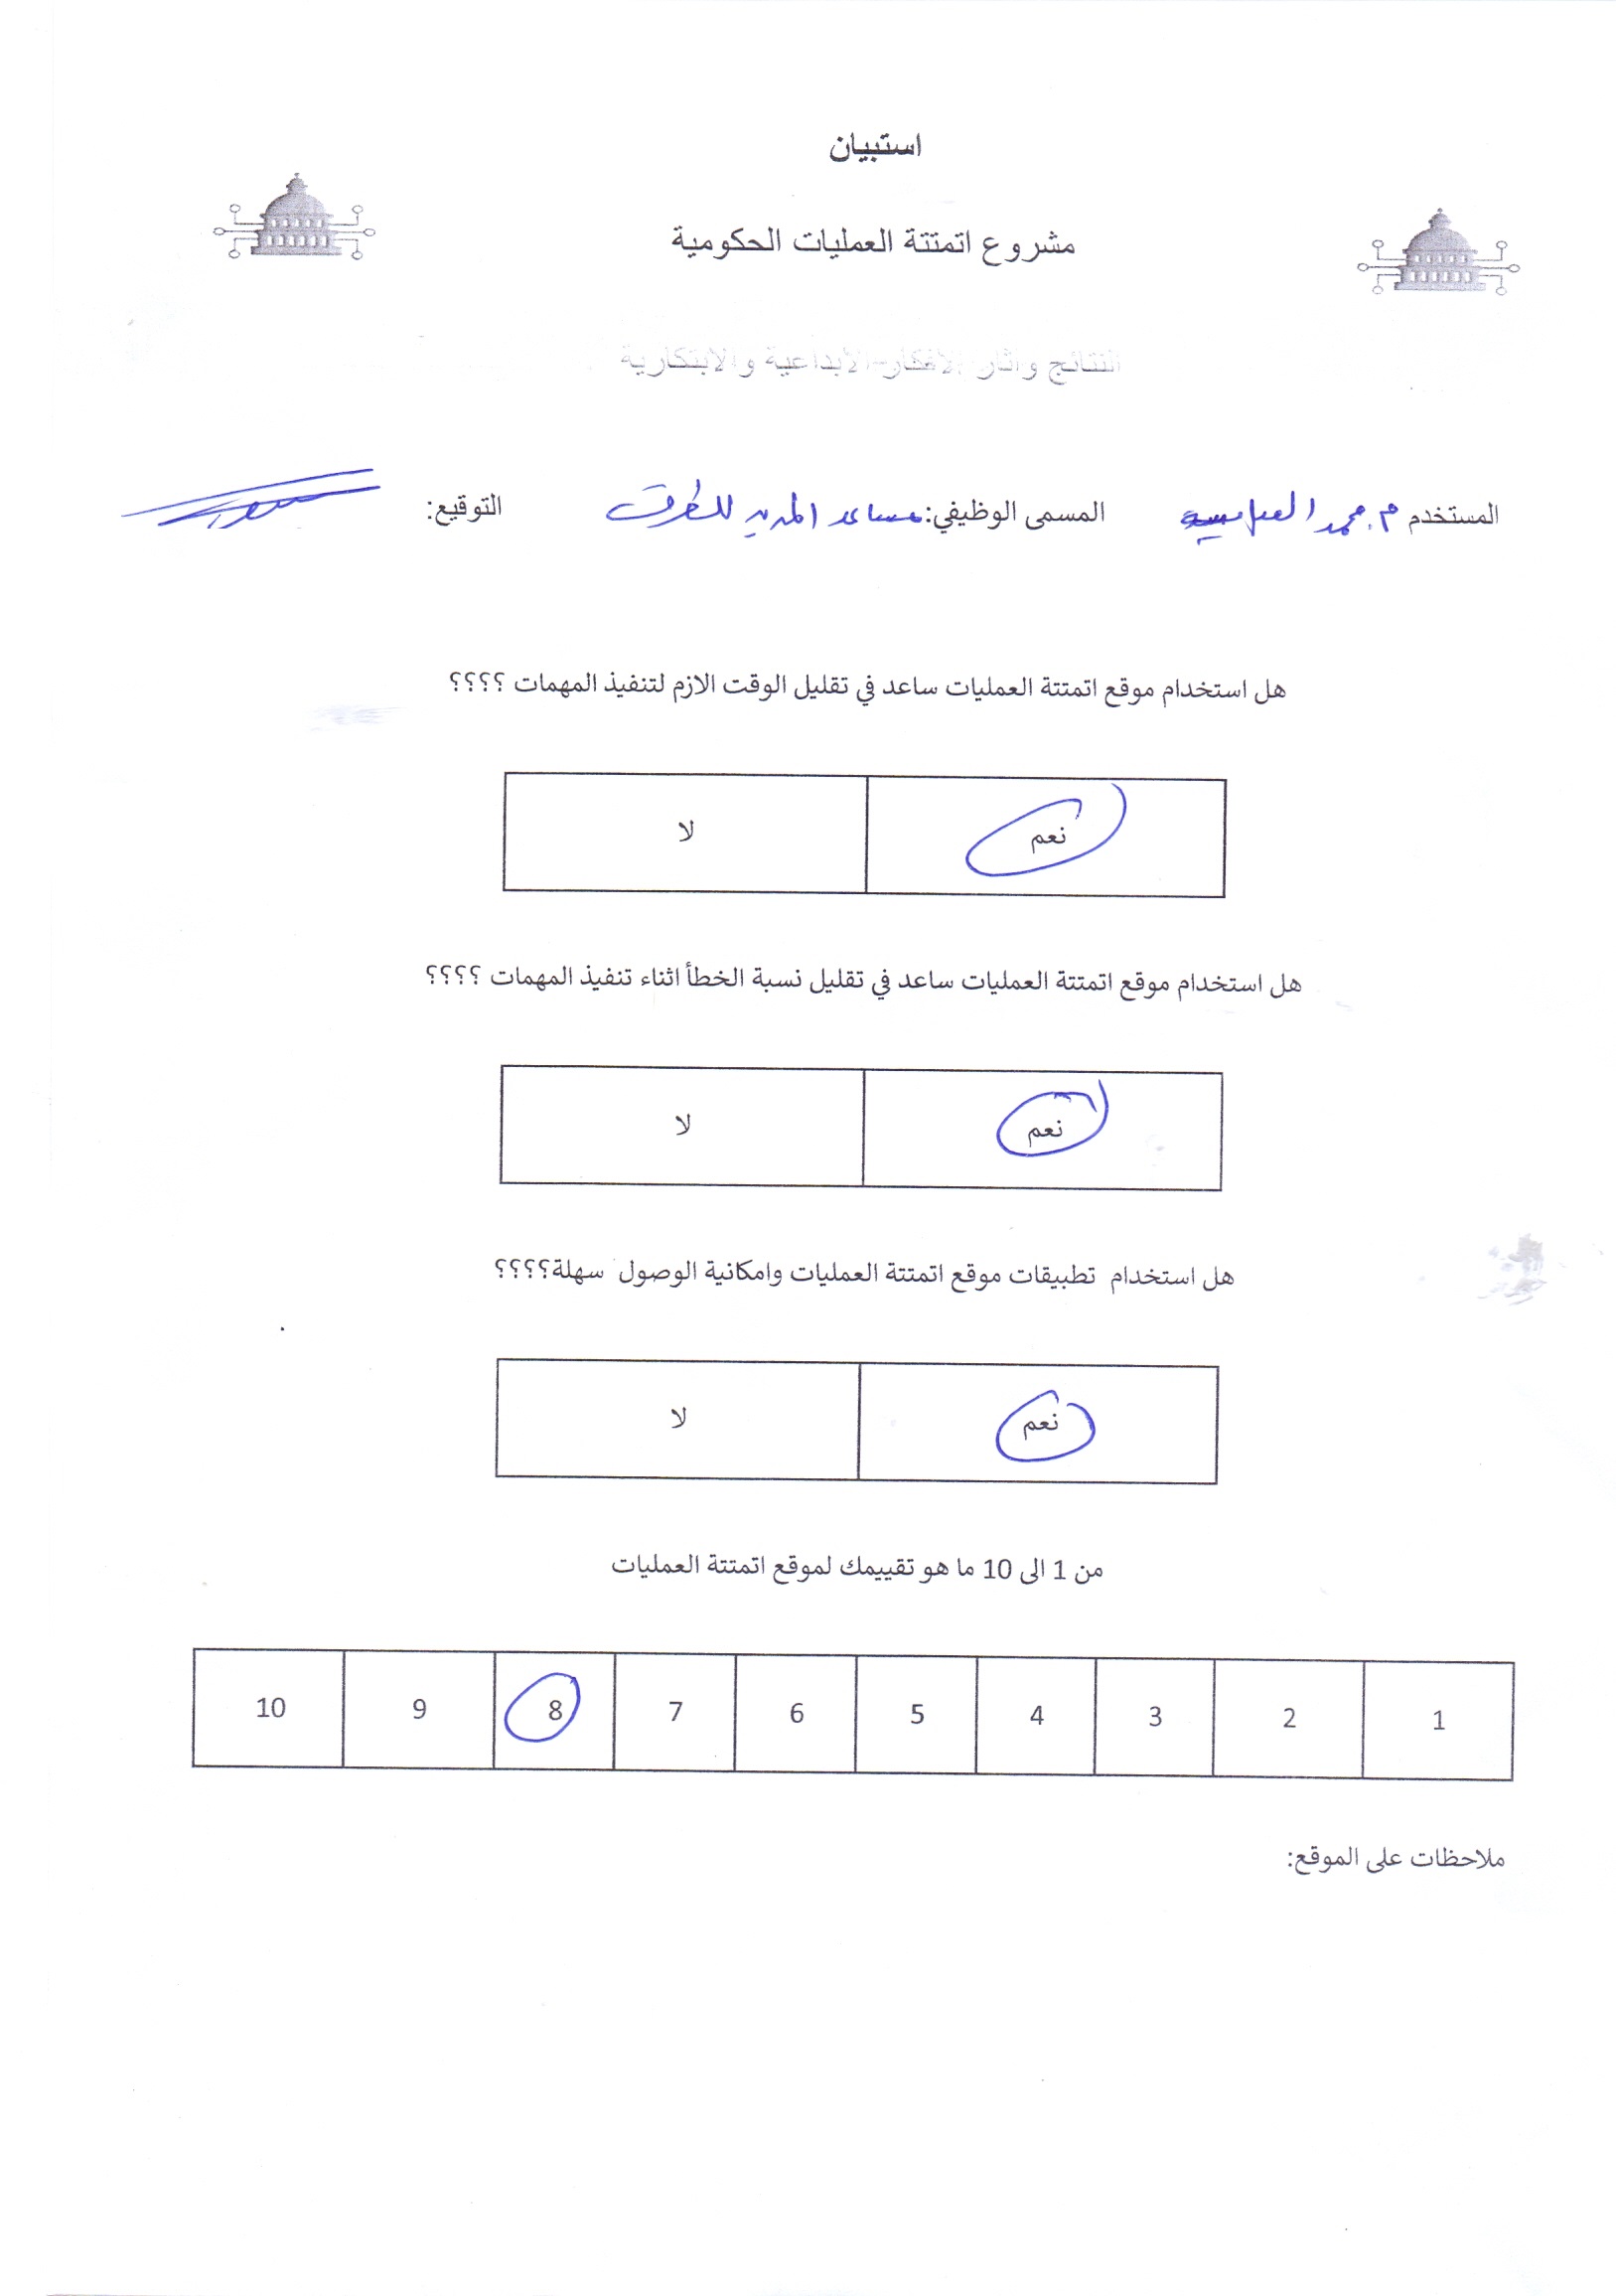 استبيان
مشروع اتمتتة العمليات الحكومية
النتائج واثار الافكار الابداعية والابتكارية
المستخدم م. محمد المسمى الوظيفي: مساعد المدير للطرق التوقيع:
هل استخدام موقع اتمتتة العمليات ساعد في تقليل الوقت الازم لتنفيذ المهمات ؟؟؟؟
نعم لا
هل استخدام موقع اتمتتة العمليات ساعد في تقليل نسبة الخطأ اثناء تنفيذ المهمات ؟؟؟؟
نعم لا
هل استخدام تطبيقات موقع اتمتتة العمليات وامكانية الوصول سهلة؟؟؟؟
نعم لا
من 1 الى 10 ما هو تقييمك لموقع اتمتتة العمليات
1 2 3 4 5 6 7 8 9 10
ملاحظات على الموقع: